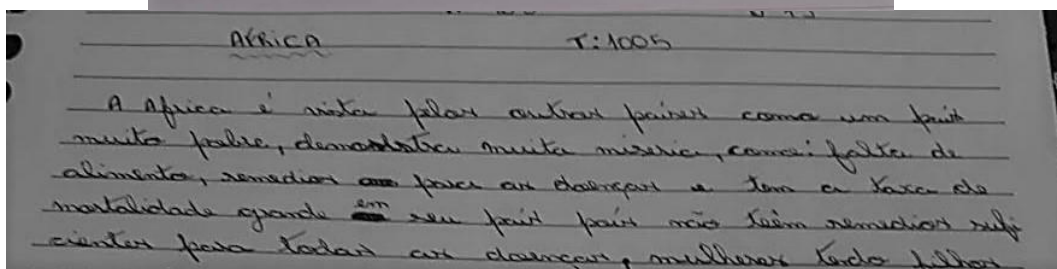 AFRICA T: 1005
A Africa é vista pelas outras países como um país
muito pobre, demonstra muita miseria, como: falta de
alimento, remedios para as doenças e tem a taxa de
mortalidade grande em seu país país não teêm remedios sufi
cientes para todas as doenças, mulheres tendo filhos